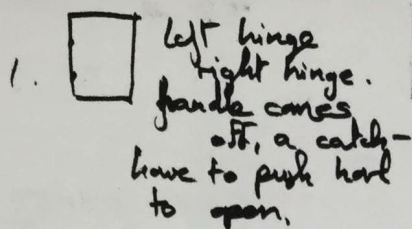 1. left hinge
right hinge.
handle comes
off, a catch-
have to push hard
to open.